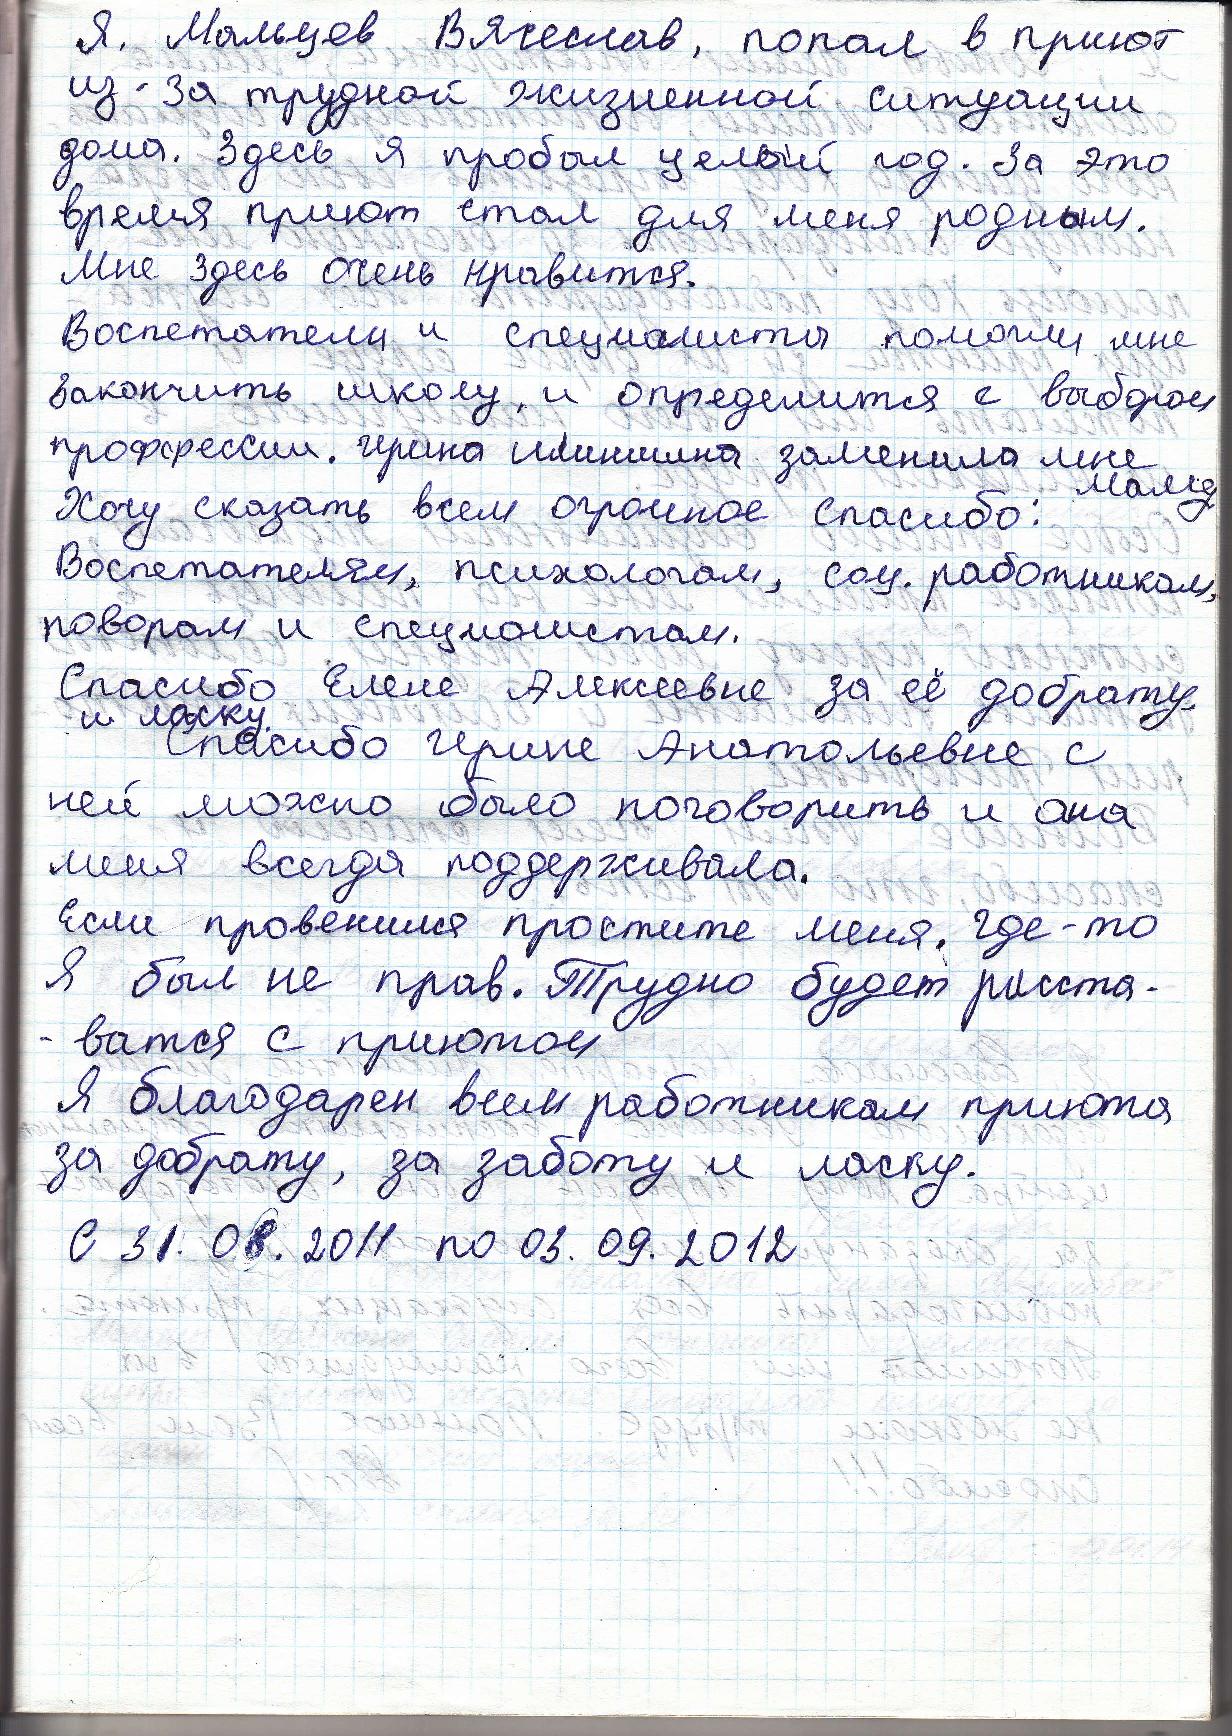 Я, Мальцев Вячеслав, попал в приют
из-за трудной жизненной ситуации
дома. Здесь я пробыл целый год. За это
время приют стал для меня родным.
Мне здесь очень нравится.
Воспетатели и специалисты помогли мне
закончить школу, и определится с выбором
профессии. Ирина заменила мне
маму
Хочу сказать всем огромное спасибо:
Воспетателям, психологам, соц. работникам,
поворам и специалистам.
Спасибо Елене Алексеевне за её доброту
и ласку.
Спасибо Ирине Анатольевне с
ней можно было поговорить и она
меня всегда поддерживала.
Если провенился простите меня, где-то
Я был не прав. Трудно будет расста-
-ватся с приютом
Я благодарен всем работникам приюта
за доброту, за заботу и ласку.
С 31.08.2011 по 03.09.2012